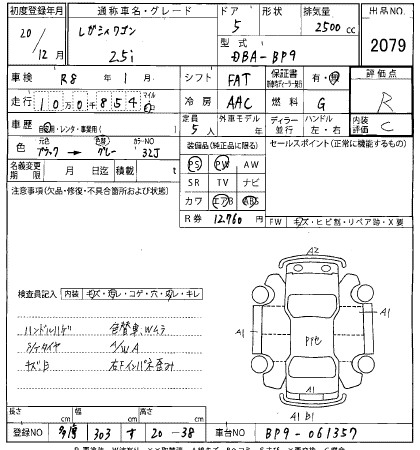 初度登録年月 通称車名・グレード ドア 形状 排気量 出品NO.
20/12月 レガシィワゴン 2.5i 5 2500 cc 2079
型式 DBA-BP9
車検 R8年 1月 シフト FAT 保証書 有・無 評価点
走行 10万0千854 マイル 冷房 AAC 燃料 G R
車歴 自家用・レンタ・事業用( ) 定員 5人 外車モデル 年 ディーラー 並行 ハンドル 左・右 内装評価 C
色 元色 ブラック → 色替 グレー カラーNO 32J 装備品(純正品に限る) セールスポイント(正常に機能するもの)
名義変更期限 月 日迄 積載 t PS PW AW
注意事項(欠品・修復・不具合箇所および状態) SR TV ナビ
カワ エアB ABS
R券 12,760 FW キズ・ヒビ割・リペア跡・X要
検査員記入 内装 キズ・汚レ・コゲ・穴・切レ・キレ
ハンドルハゲ 色替車 Wムラ
A/WA
キズ凹 右Fインパネ歪み
A2
A1 A1
PPセ
A1
A1 B1
長さ cm 幅 cm 高さ cm
登録NO 多摩 303 す 20-38 車台NO BP9-061357